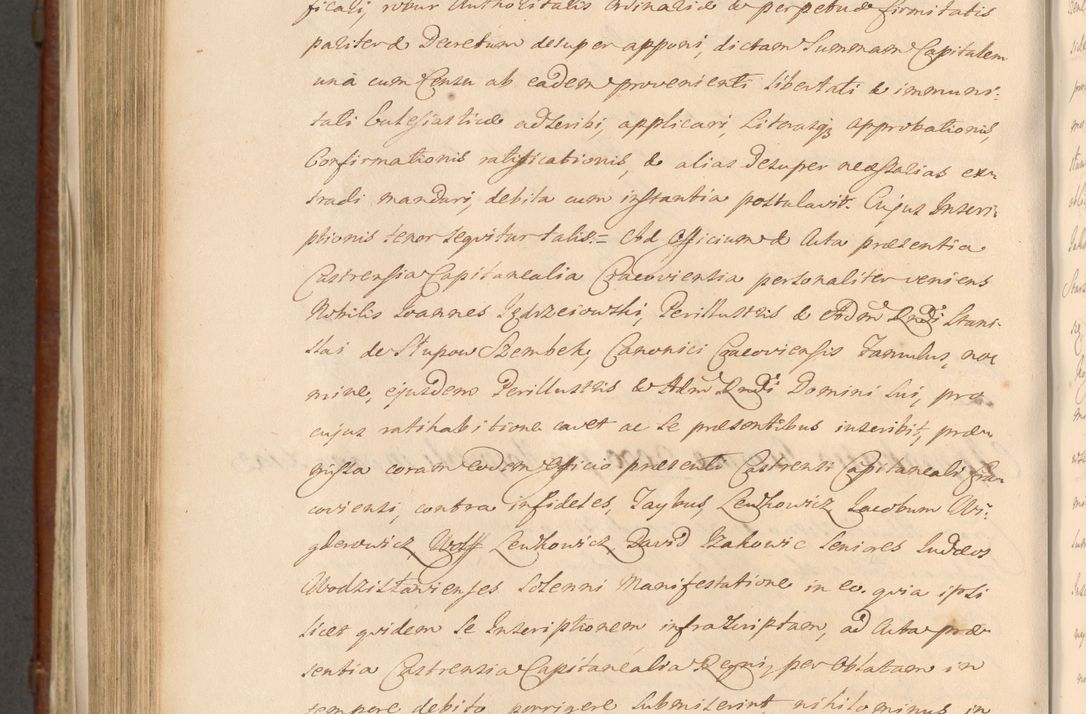 ficali, robur Authoritatis Ordinariæ & perpetuæ firmitatis
pariter & Decretum desuper apponi, dictam Summam Capitalem
una cum Censu ab eadem provenienti libertati & immuni-
tati Eccles̃iasticæ adscribi, applicari, Literasq; approbationis,
Confirmationis ratificationis, & alias desuper necessarias ex-
tradi mandari, debita cum instantia postulavit. Cujus Inscri-
ptionis tenor sequitur talis = Ad Officium & Acta præsentia
Castrensia Capitanealia Cracoviensia personaliter veniens
Nobilis Joannes Jędrzeiowski, Perillustris & Adm̃ Rñdi Stani-
slai de Słupow Szembek, Canonici Cracoviensis famulus, no-
mine, ejusdem Perillustris & Adm̃ Rñdi Domini sui, pro
cujus ratihabitione cavet ac se præsentibus inscribit, præ-
missa coram eodem Officio præsenti Castrensi Capitaneali Cra-
coviensi, contra infideles, Faybus Lewkowicz Jacobum Wi-
glerowicz Wolff Lewkowicz David Izakowic Seniores Judæos
Wodzisłavienses solenni Manifestatione in eo. quia ipsi
licet quidem se Inscriptionem infrascriptam, ad Acta præ-
sentia Castrensia Capitanealia Regni, per Oblatam in
tempore debito porrigere submiserint nihilominus in